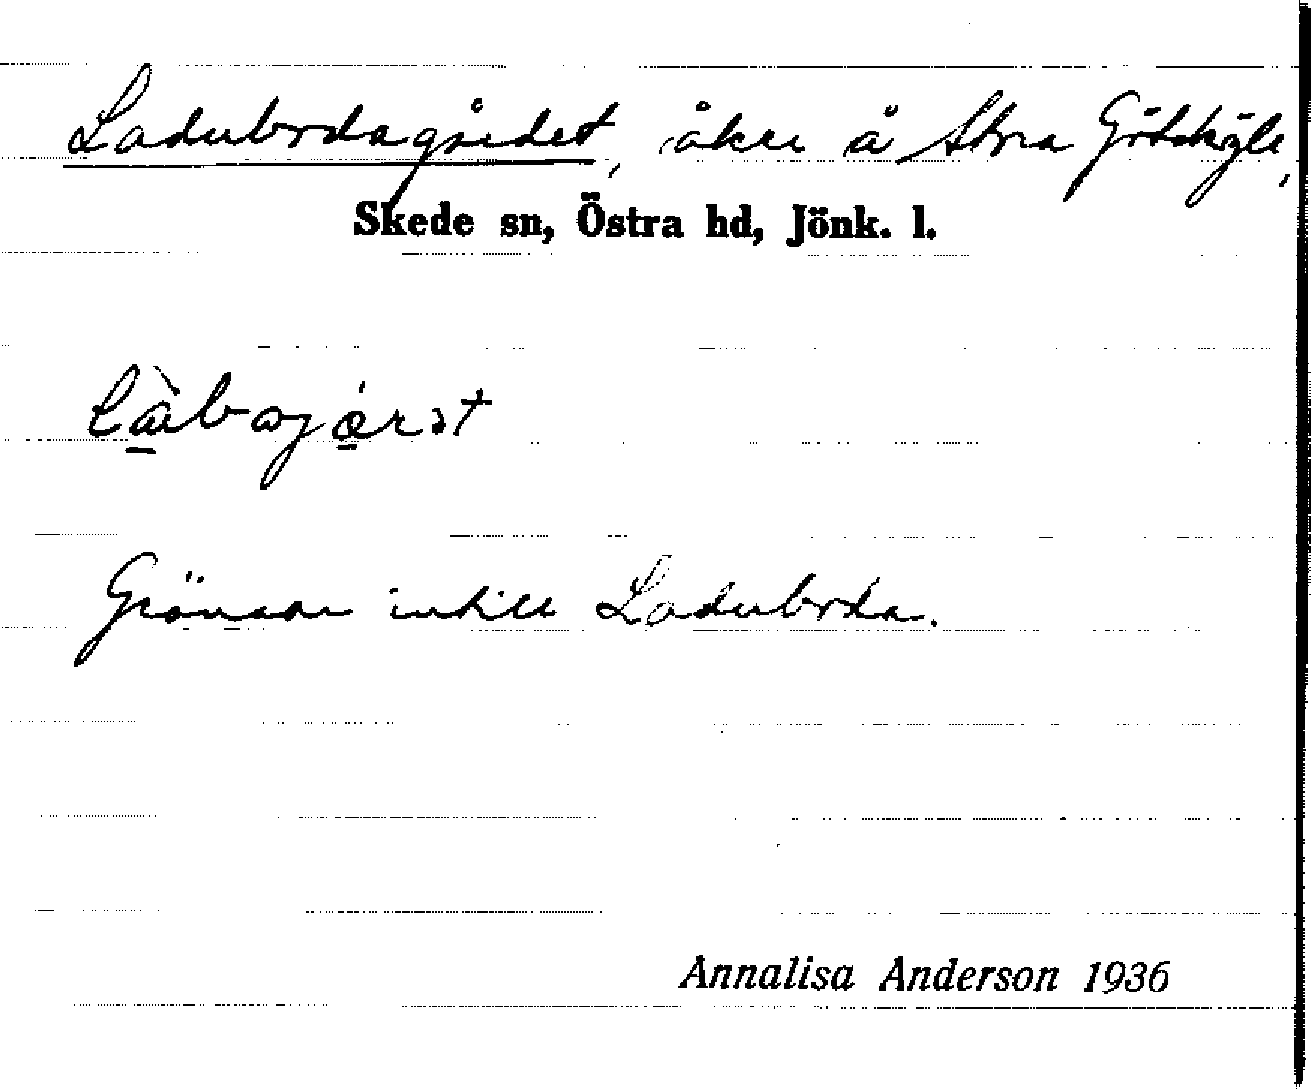 Ladubrdagärdet, åker å Stora Götshyle,
Skede sn, Östra hd, Jönk. l.
Gränsar intill Laduborda.
Annalisa Anderson 1936